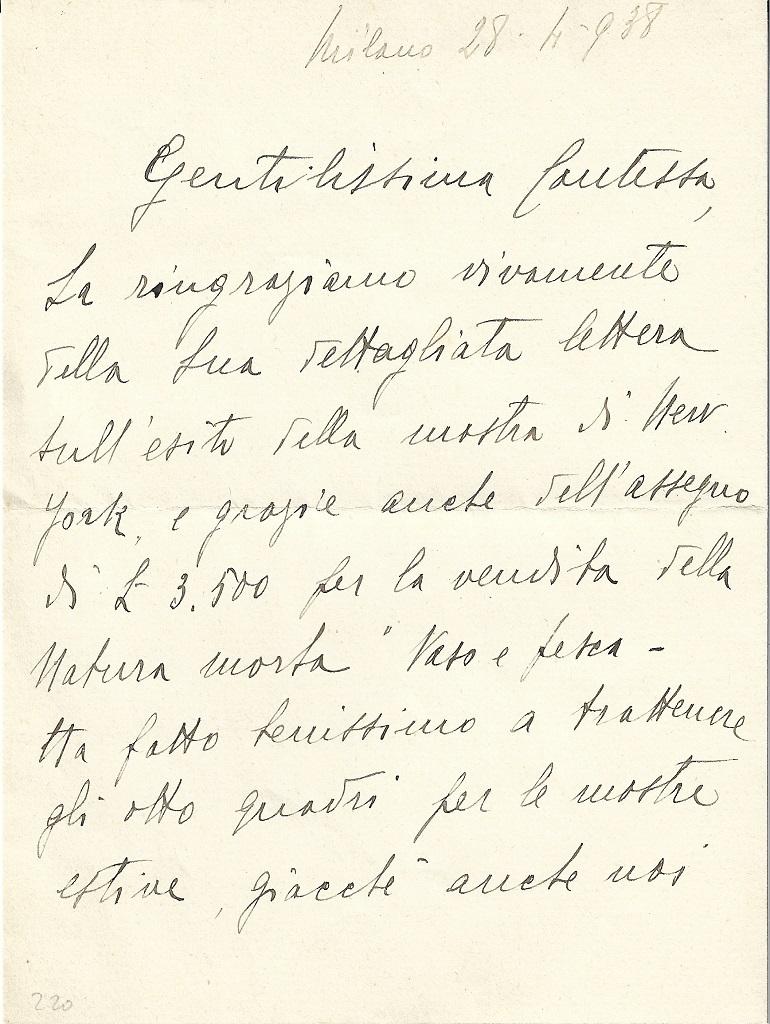 Milano 28-4-938
Gentilissima Contessa,
La ringraziamo vivamente
della Sua dettagliata lettera
sull'esito della mostra di New
York, e grazie anche dell'assegno
di £ 3.500 per la vendita della
Natura morta "Vaso e pesca -
Ha fatto benissimo a trattenere
gli otto quadri per le mostre
estive, giacché anche noi
220